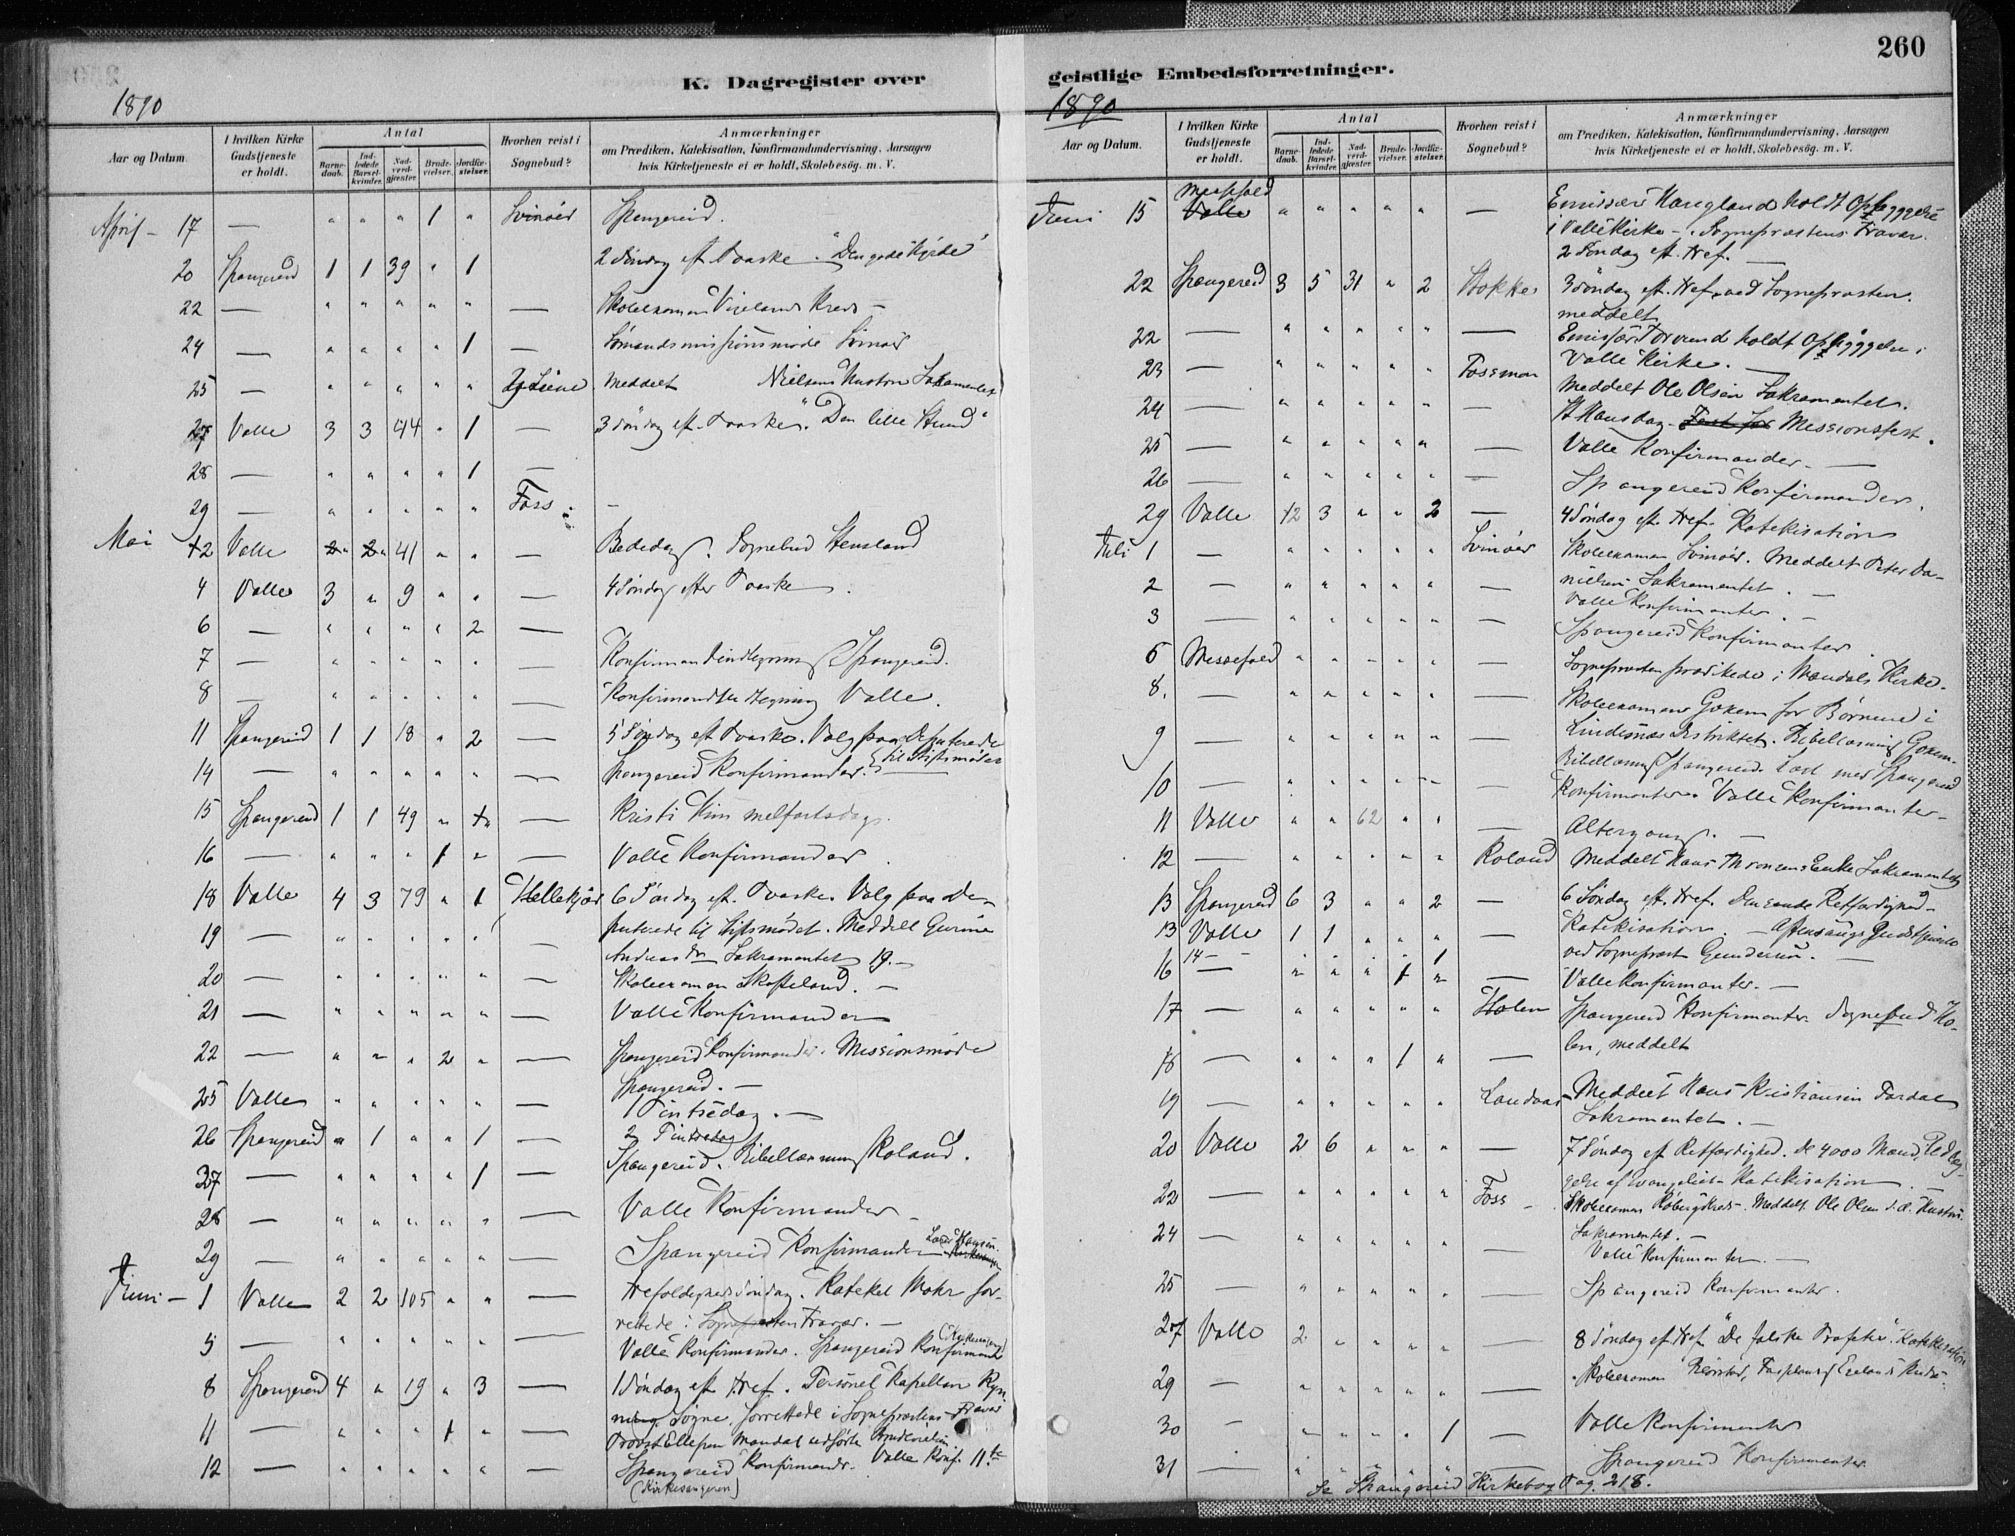 260
K. Dagregister over
1890
Aar og Datum.
I hvilken Kirke Gudstjeneste er holdt.
Antal
Barne-daab.
Ind-ledede Barsel-kvinder.
Nad-verd-gjæster.
Brude-vielser.
Jordfæ-stelser.
Hvorhen reist i Sognebud?
Anmærkninger
om Prædiken, Katekisation, Konfirmandundervisning, Aarsagen
hvis Kirketjeneste ei er holdt, Skolebesög. m. V.
April - 17 — " " " 1 " Svinöer Spangereid.
20 Spangereid 1 1 39 " 1 2 Söndag eft Paaske. "Den gode Hyrde"
22 — " " " " " — Skoleexamen Vigelands Kreds -
24 — " " " " 1 — Sömandsmissionsmöde Svinöer
25 — " " " " " Meddelt Nielsens Hustru Sakramentet
27 Valle 3 3 44 " 1 — 3 Söndag eft. Paaske. "Den lille Stund"
28 — " " " " 1 —
29 — " " " " " Foss -
Mai 2 Valle " " 41 " " — Bededag. Sognebud Stensland
4 Valle 3 " 9 " " — 4 Söndag efter Paaske.
6 — " " " " 2 —
7 — " " " " " Konfirmandindtegning Spangereid.
8 — " " " " " — Konfirmandindtegning Valle.
11 Spangereid 1 1 18 " 2 — 5 Söndag eft Paaske. Valg paa Deputerede
til Stiftsmödet
14 — " " " " " — Spangereid Konfirmander.
15 Spangereid 1 1 49 " " — Kristi Himmelfartsdag.
16 — " " " 1 " — Valle Konfirmander.
18 Valle 4 3 79 " 1 Hellekjær 6 Söndag eft. Paaske. Valg paa De-
puterede til Stiftsmödet. Meddelt Gurine
19 — " " " " " — Andreasdtr Sakramentet 19.-
20 — " " " " " — Skoleexamen Skofteland. -
21 — " " " " " — Valle Konfirmander
22 — " " " 2 " — Spangereid Konfirmander. Missionsmöde
Spangereid. -
25 Valle " " " " " — 1 Pintsedag. -
26 Spangereid " 1 " " 1 — 2 Pintsedag
27 — " " " " 1 Spangereid. Bibellæsning Roland.
28 — " " " " " — Valle Konfirmander
29 — " " " " " — Spangereid Konfirmander
Juni - 1 Valle 2 2 105 " " — Trefoldighedssöndag. Kateket Mohr for-
rettede i Sognepræstens Fravær. -
5 — " " " " " — Valle Konfirmander. Spangereid Konfirmander
8 Spangereid 4 " 19 " 3 — 1 Söndag eft Tref. Personel Kapellan Ryn-
ning, Sögne, forrettede i Sognepræstens Fravær
11 — " " " 1 " — Provst Ellefsen Mandal udförte Brudevielsen
12 — " " " " " — Spangereid Konfirmander. Valle Konf. 11te
(Kirkesangeren)
geistlige Embedsforretninger.
1890
Aar og Datum.
I hvilken Kirke Gudstjeneste er holdt.
Antal
Barne-daab.
Ind-ledede Barsel-kvinder.
Nad-verd-gjæster.
Brude-vielser.
Jordfæ-stelser.
Hvorhen reist i Sognebud?
Anmærkninger
om Prædiken, Katekisation, Konfirmandundervisning, Aarsagen
hvis Kirketjeneste ei er holdt, Skolebesög. m. V.
Juni 15 Messefald Valle " " " " " — Emissær Haugland holdt Opbyggelse
i Valle Kirke - i Sognepræstens Fravær.
2 Söndag eft. Tref. —
22 Spangereid 3 5 31 " 2 Stokke 3 Söndag eft. Tref. ved Sognepræsten.
meddelt
22 — " " " " " — Emissær holdt Opbyggelse i
Valle Kirke. —
23 — " " " " " Fossmon Meddelt Ole Olsen Sakramentet.
24 — " " " " " — St Hansdag - Missionsfest.
25 — " " " " " — Valle Konfirmander. —
26 — " " " " " — Spangereid Konfirmander.
29 Valle 12 3 " " 2 — 4 Söndag eft. Tref. Katekisation
Juli 1 — " " " " " Svinöer Skoleexamen Svinöer. Meddelt Peter Da-
nielsen Sakramentet. —
2 — " " " " " — Valle Konfirmanter. -
3 — " " " " " — Spangereid Konfirmanter.
6 Messefald " " " " " — Sognepræsten prædikede i Mandals Kirke.
8. — " " " " " — Skoleexamen Goxem for Börnene i
Lindesnæs Distriktet. Bibellæsning Goxem.
9 — " " " " " — Bibellæsning Spangereid. Læst med Spangereid
10 — " " " " " — Konfirmanter. Valle Konfirmanter -
11 Valle " " 62 " " — Altergang. —
12 — " " " " " Roland Meddelt Hans Thronsens Enke Sakramentet
13 Spangereid 6 3 " " 2 — 6 Söndag eft. Tref. Den sande Retfærdighed -
Katekisation. -
13 Valle 1 1 " " " — Aftensangs Gudstjeneste
ved Sognepræst Gundersen. —
14 - - " " " " 1
16 — " " " 1 " — Valle Konfirmanter. —
17 — " " " " " Holen Spangereid Konfirmanter. Sognebud Ho-
len, meddelt
18 — " " " 1 " —
19 — " " " " " Landaas Meddelt Hans Kristiansen Fardal
Sakramentet. -
20 Valle 2 6 " " " — 7 Söndag eft Retfærdighed. De 4000 Mænd.
Katekisation. —
22 — " " " " " Foss - Skoleexamen Meddelt Ole Olsen Hustru
Sakramentet. -
24 — " " " " " — Valle Konfirmanter. —
25 — " " " " " — Spangereid Konfirmanter.
27 Valle 2 " " " " 8 Söndag eft Tref "De falske Profeter." Katekisation
29 — " " " " " — Skoleexamen
30 — " " " " 1 — Valle Konfirmanter
31 — " " " " " — Spangereid Konfirmanter
Se Spangereid Kirkebog Pag. 218.